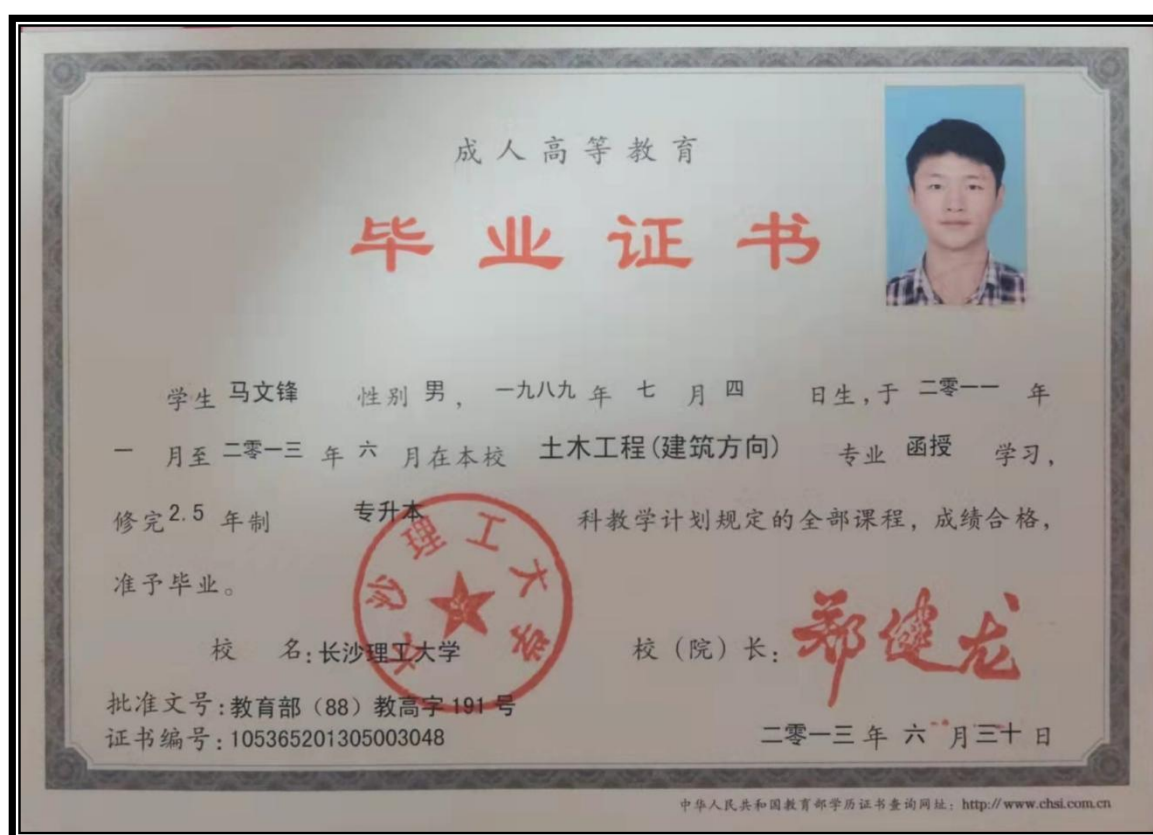 成人高等教育
毕业证书
学生 马文锋 性别 男, 一九八九 年 七 月 四 日生,于 二零一一 年
一 月至 二零一三 年 六 月在本校 土木工程(建筑方向) 专业 函授 学习,
修完2.5 年制 专升本 科教学计划规定的全部课程,成绩合格,
准予毕业。
长沙理工大学
校 名:长沙理工大学 校(院)长: 郑健龙
批准文号:教育部(88)教高字 191 号
证书编号:105365201305003048 二零一三 年 六 月 三十 日
中华人民共和国教育部学历证书查询网址:http://www.chsi.com.cn